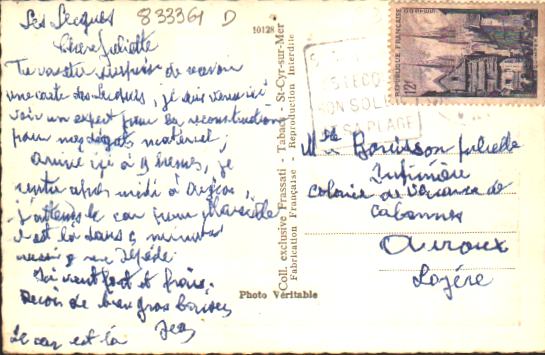 Les Lecques
833361 D
10128
Chère Juliette
Tu vas être surprise de recevoir
une carte des Lecques, je suis venu ici
voir un expert pour la reconstruction
pour mes dégâts matériel,
arrivé ici à 9 heures, je
rentre après midi à
j'attends le car pour Marseille
il est là dans 5 minutes
aussi je me
Ici vient fort et frais.
Reçois de bien gros baisers
Jean
le car est là
Coll. exclusive Frassati - Tabacs - St-Cyr-sur-Mer
Fabrication Française - Reproduction Interdite
Photo Véritable
REPUBLIQUE FRANÇAISE
12F
LES LECQ
SON SOLEIL
SA PLAGE
Mlle Bouisson Juliette
Infirmière
Colonie de Vacances de
Auroux
Lozère